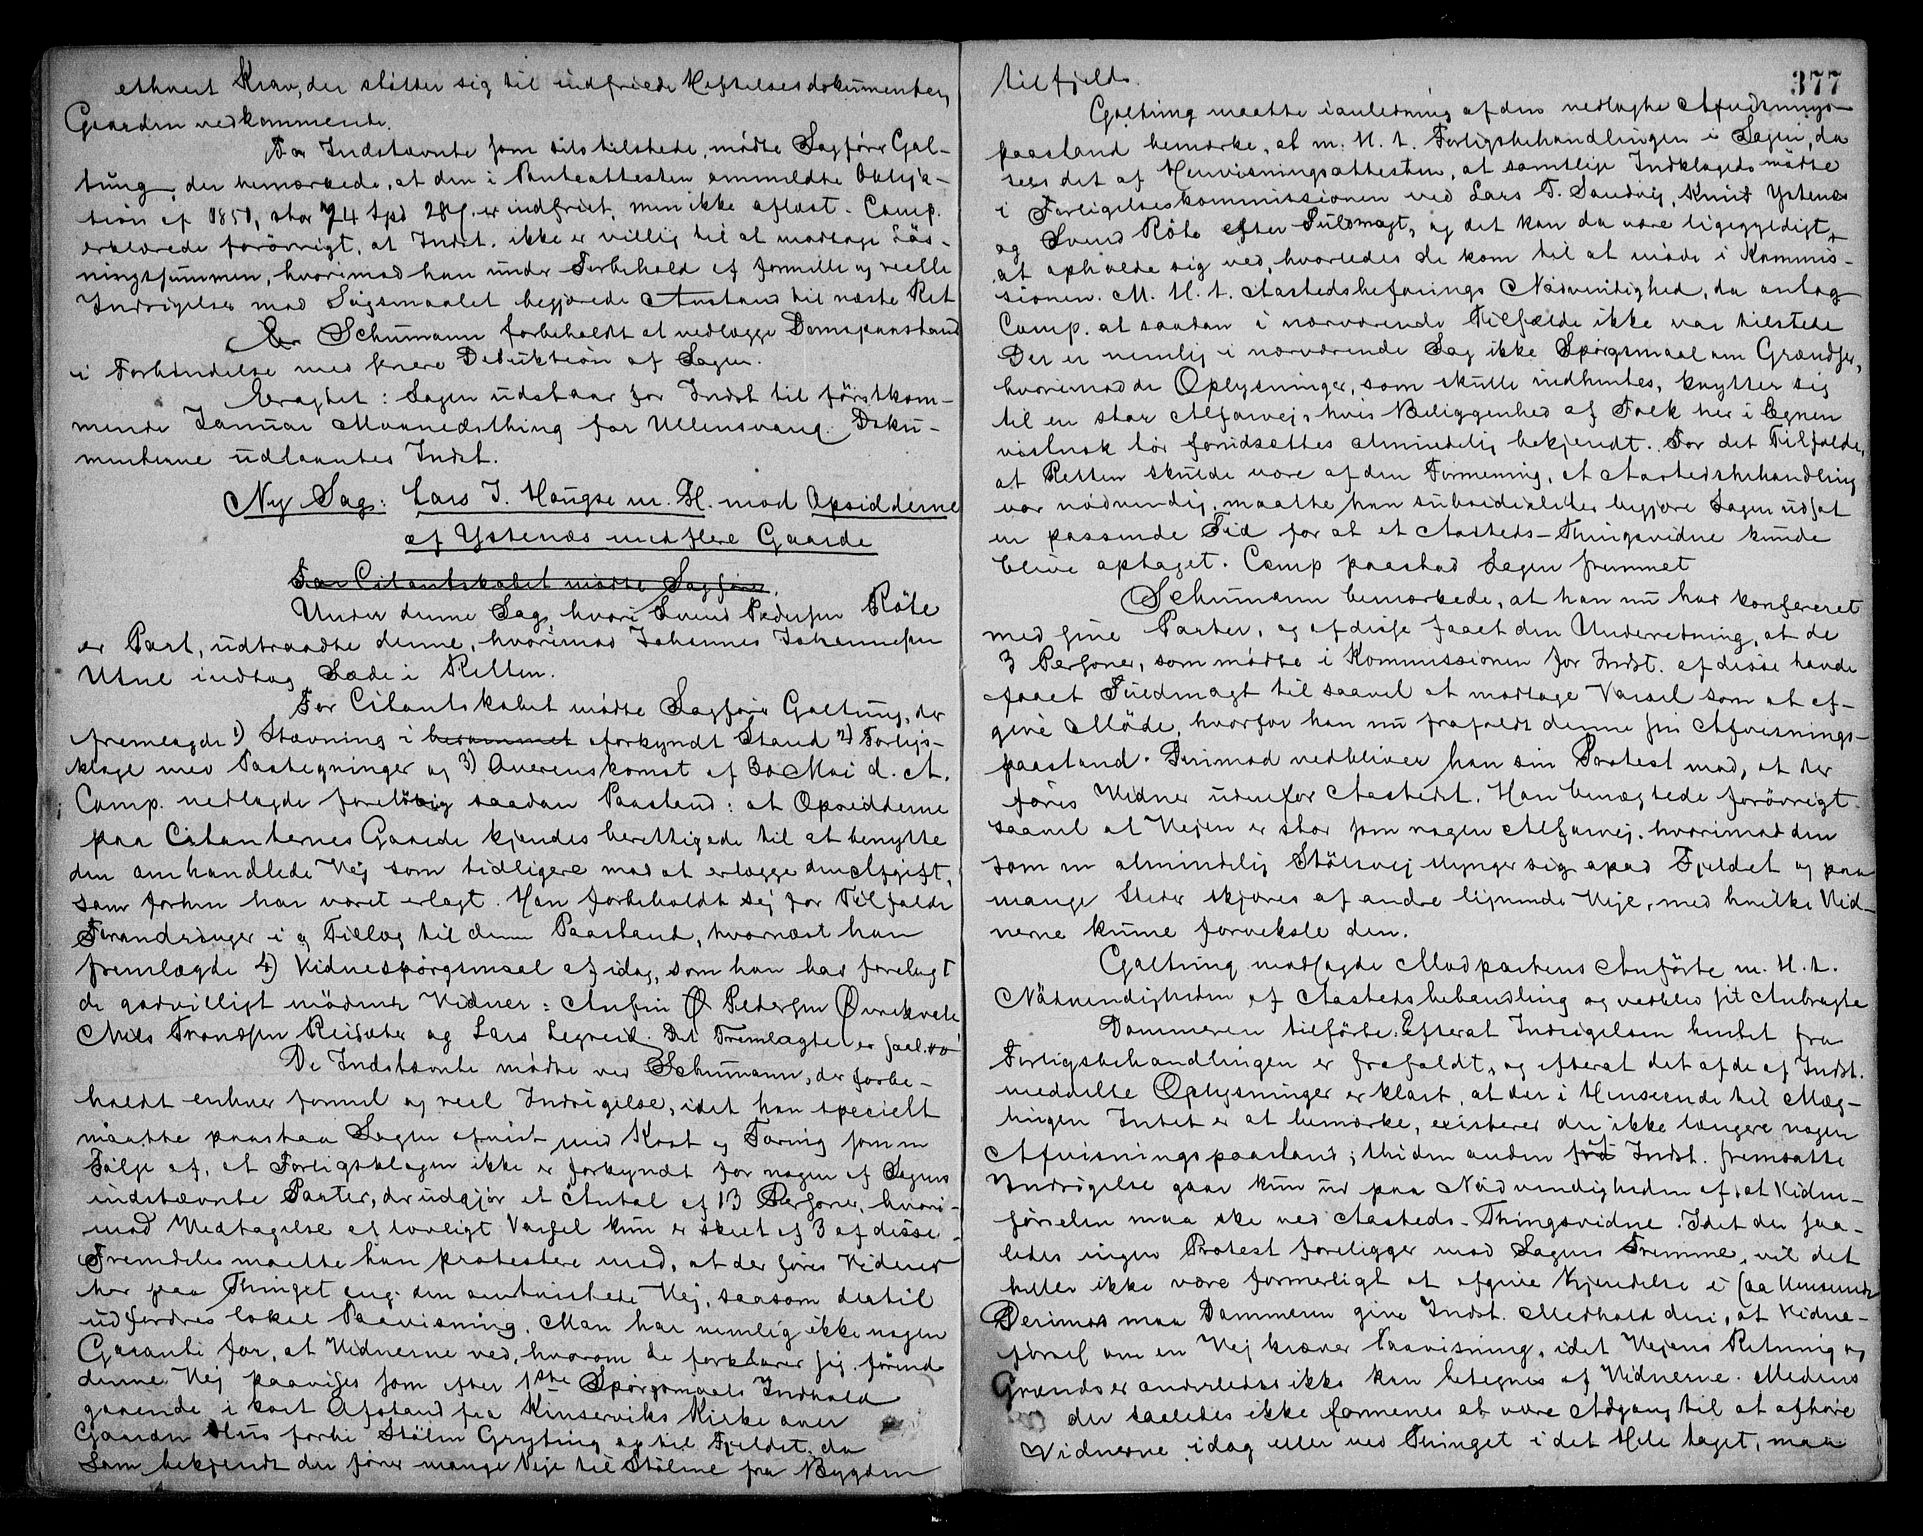 ethvert Krav, der slötter sig til indfriede Heftelsesdokumenter,
Gaarden vedkommende.
For Indstævnte som tilstede, mødte Sagfører Gal-
tung, der bemærkede, at den i Panteattesten anmeldte Obliga-
tion af 1851, stor 74 Spd 28 β. er indfriet, men ikke aflæst. Comp.
erklærede forövrigt, at Indst. ikke er villig til at modtage Lös-
ningssummen, hvorimod han under Forbehold af formelle og reelle
Indsigelser mod Sögsmaalet begjærede Anstand til næste Ret
Er Schumann forbeholdt at nedlægge Domspaastand
i Forbindelse med senere Deduktion af Sagen.
Eragtet: Sagen udstaar for Indst til förstkom-
mende Januar Maanedsthing for Ullensvang. Doku-
menterne udlaantes Indst.
Ny Sag: Lars J. Haugse m. H. mod Opsidderne
af Ystenæs med flere Gaarde
For Citantskabet mødte Sagfører
Under denne Sag, hvori Svend Pedersen Röte
er Part, udtraadte denne, hvorimod Johannes Johannesen
Utne indtog Sæde i Retten.
For Citantskabet mødte Sagfører Galtung, der
fremlagde 1) Stævning i berammet forkyndt Stand 2) Forligs-
klage med Paategninger og 3) Overenskomst af 30 Mai d. A.
Comp. nedlagde forelöbig saadan Paastand: at Opsidderne
paa Citanternes Gaarde kjendes berettigede til at benytte
den omhandlede Vej som tidligere mod at erlægge den Afgift,
som forhen har været erlagt. Han forbeholdt sig for Tilfælde
Forandringer i og Tillæg til denne Paastand, hvornæst han
fremlægde 4) Vidnespörgsmaal af idag, som han har forelagt
de godvilligt mödende Vidner: Anfin Ø Pedersen Øvrekvale
Niels Trondsen Reisæter og Lars Legreid. Det Fremlagte er saal.
De Indstævnte mødte ved Schumann, der forbe-
holdt enhver formel og reel Indsigelse, idet han specielt
maatte paastaa Sagen afvist med Kost og Tæring som en
Fölge af, at Forligsklagen ikke er forkyndt for nogen af Sagens
indstævnte Parter, der udgjör et Antal af 13 Personer, hvori-
mod Vedtagelse af lovligt Varsel kun er skeet af 3 af disse.
Fremdeles maatte han protestere mod, at der føres Vidner
her paa Thinget ang. den omtvistede Vej, saasom dertil
udfordres lokal Paavisning. Man har nemlig ikke nogen
Garanti for, at Vidnerne ved, hvorom de forklarer sig, førend
denne Vej paavises som efter 1ste Spörgsmaals Indhold
gaaende i kort Afstand fra Kinserviks Kirke over
Gaarden Hus forbi Stölen Gryting og til Fjeldet, da
som bekjendt der fører mange Veje til Stölene fra Bygden
377
tilfjelds.
Galtung maatte i anledning af den nedlagte Afvisnings-
paastand bemærke, at m. H. t. Forligsbehandlingen i Sagen, da
sees det af Henvisningsattesten, at samtlige Indklagede mødte
i Forligelseskommissionen ved Lars T. Sandvig, Knud Ystenæs
og Svend Röte efter Fuldmagt, og det kan da være ligegyldigt,
at opholde sig ved, hvorledes de kom til at møde i Kommis-
sionen. M. H. t. Aastedsbefarings Nödvendighed, da antog
Comp. at saadan i nærværende Tilfælde ikke var tilstede
Der er nemlig i nærværende Sag ikke Spörgsmaal om Grændser,
hvorimod de Oplysninger, som skulle indhentes, knytter sig
til en stor Alfarvej, hvis Beliggenhed af Folk her i Egnen
vistnok tör forudsættes almindelig bekjendt. For det Tilfælde,
at Retten skulde være af den Formening, at Aastedsbehandling
var nødvendig, maatte han subsidialiter begjære Sagen udsat
en passende Tid for at et Aasteds-Thingsvidne kunde
blive optaget. Comp paastod Sagen fremmet
Schumann bemærkede, at han nu har konfereret
med sine Parter, og af disse faaet den Underretning, at de
3 Personer, som mødte i Kommissionen for Indst. af disse havde
faaet Fuldmagt til saavel at modtage Varsel som at af-
give Möde, hvorfor han nu frafaldt denne sin Afvisnings-
paastand. Derimod vedbliver han sin Protest mod, at der
føres Vidner udenfor Aastedet. Han benægtede forövrigt
saavel at Vejen er stor som nogen Alfarvej, hvorimod den
som en almindelig Stölsvej slynger sig opad Fjeldet og paa
mange Steder skjæres af andre lignende Veje, med hvilke Vid-
nerne kunne forveksle den.
Galtung modsagde Modpartens Anförte m. H. t.
Nödvendigheden af Aastedsbehandling og vedblev sit Anbragte
Dommeren tilförte: Efterat Indsigelsen hentet fra
Forligsbehandlingen er frafaldt, og efterat det af de af Indst.
meddelte Oplysninger er klart, at der i Henseende til Mæg-
lingen Intet er at bemærke, existerer der ikke længere nogen
Afvisningspaastand; thi den anden fra Indst. fremsatte
Indsigelse gaar kun ud paa Nödvendigheden af, at Vidne-
førselen maa ske ved Aasteds-Thingsvidne. Idet der saa-
ledes ingen Protest foreligger mod Sagens Fremme, vil det
heller ikke være fornødent at afgive Kjendelse i saa Henseende
Derimod maa Dommeren give Indst. Medhold deri, at Vidne-
førsel om en Vej kræver Paavisning, idet Vejens Retning og
Grændser anderledes ikke kan betegnes af Vidnerne. Medens
der saaledes ikke formenes at være Adgang til at afhøre
Vidnerne idag eller ved Thinget i det Hele taget, maa